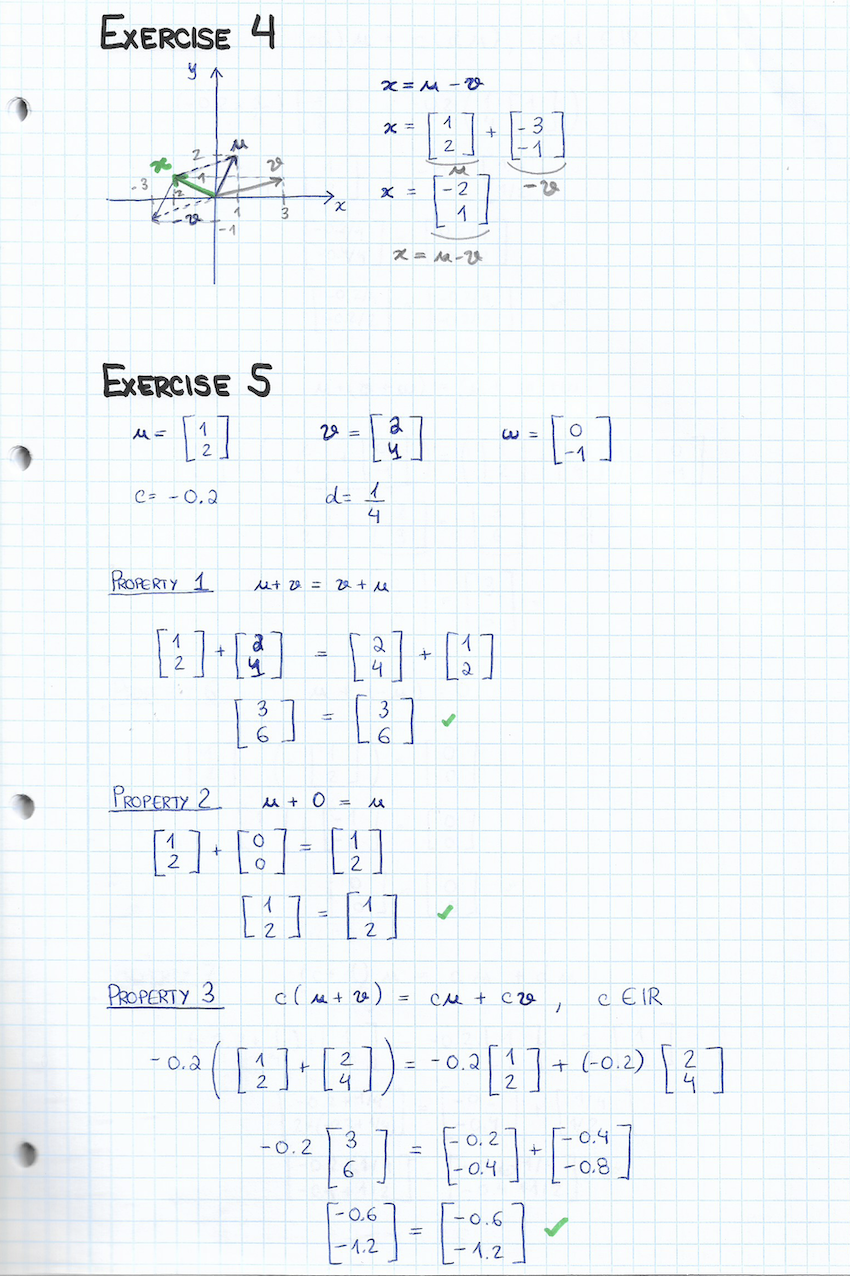 EXERCISE 4
y
x = u - v
x = [1 2] + [-3 -1]
u
-v
x = [-2 1]
x = u - v
x
u
v
2
1
-3
-2
-v
1
3
x
-1
EXERCISE 5
u = [1 2] v = [2 4] w = [0 -1]
c = -0.2 d = 1/4
PROPERTY 1 u + v = v + u
[1 2] + [2 4] = [2 4] + [1 2]
[3 6] = [3 6] ✓
PROPERTY 2 u + 0 = u
[1 2] + [0 0] = [1 2]
[1 2] = [1 2] ✓
PROPERTY 3 c(u + v) = cu + cv , c ∈ ℝ
-0.2([1 2] + [2 4]) = -0.2[1 2] + (-0.2)[2 4]
-0.2[3 6] = [-0.2 -0.4] + [-0.4 -0.8]
[-0.6 -1.2] = [-0.6 -1.2] ✓